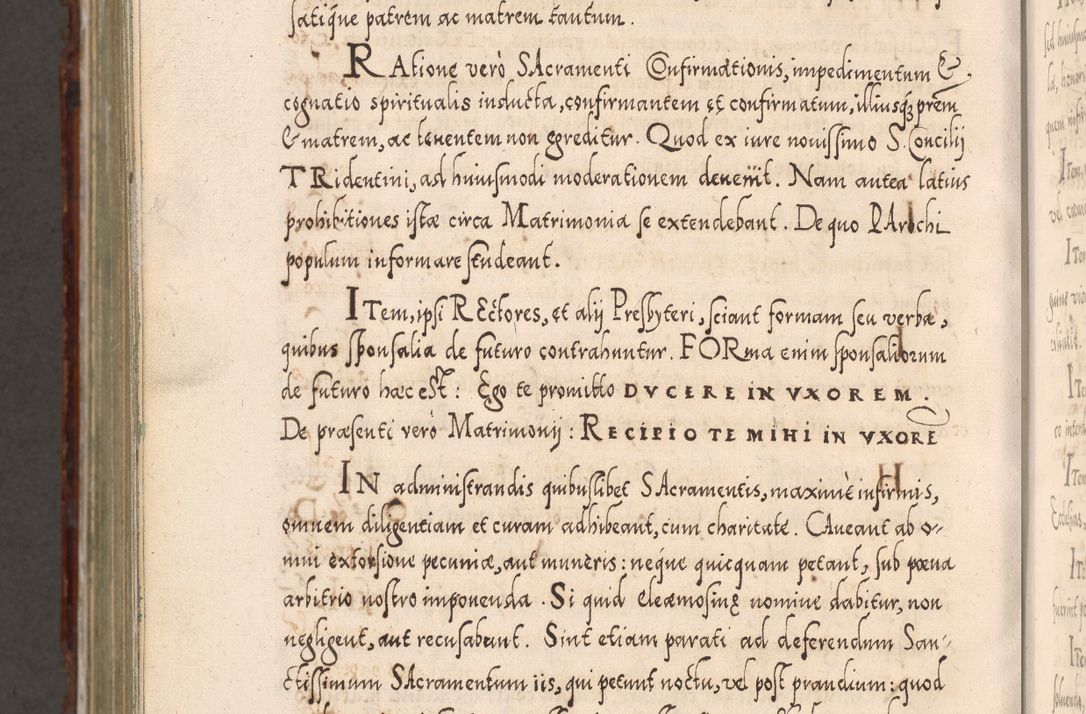 satique patrem ac matrem tantum.
RAtione verò SAcramenti Confirmationis, impedimentum &
cognatio spiritualis inducta, confirmantem et confirmatum, illiusq; prēm
& matrem, ac tenentem non egreditur. Quod ex iure novissimo S. Concilij
TRidentini, ad huiusmodi moderationem devenit. Nam antea latius
prohibitiones istæ circa Matrimonia se extendebant. De quo PArochi
populum informare studeant.
ITem, ipsi REctores, et alij Presbyteri, sciant formam seu verba,
quibus sponsalia de futuro contrahuntur. FORma enim sponsaliorum
de futuro hæc est: Ego te promitto DVCERE IN VXOREM.
De præsenti verò Matrimonij: RECIPIO TE MIHI IN VXORĒ
IN administrandis quibuslibet SAcramentis, maximè infirmis,
omnem diligentiam et curam adhibeant, cum charitate. CAveant ab o-
mni extorsione pecuniæ, aut muneris: neque quicquam petant, sub pœna
arbitrio nostro imponenda. Si quid eleæmosinę nomine dabitur, non
negligent, aut recusabunt. Sint etiam parati ad deferendum San-
ctissimum SAcramentum iis, qui petunt noctu, vel post prandium: quod